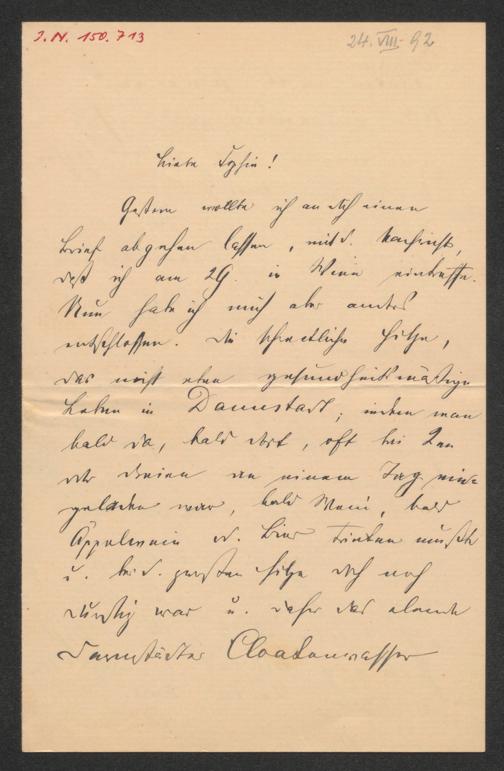 J.N. 150.713
24. VIII. 92
Liebe Sophie!
Gestern wollte ich an dich einen
Brief abgehen lassen, mit d. Nachricht,
daß ich am 29. in Wien eintreffe.
Nun habe ich mich aber anders
entschlossen. Die schreckliche Hitze,
das nicht eben gesundheitsmäßige
Leben in Darmstadt; indem man
bald da, bald dort, oft bei Zwei
oder Dreien an einem Tag einge-
geladen war, bald Wein, bald
Äppelwein od. Bier trinken mußte
u. bei d. großen Hitze doch noch
durstig war u. daher das elende
Darmstädter Cloakenwasser